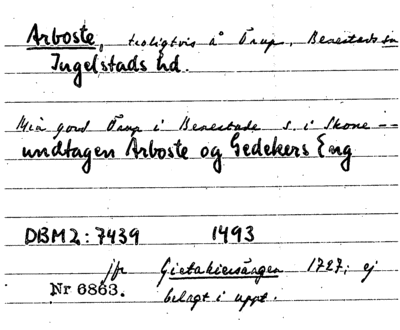 Arboste, troligtvis å Örup, Benestads sn
Ingelstads hd.
Min gord Örup i Benestade s. i Skone --
undtagen Arboste og Gedekers Eng
DBM2:7439 1493
jfr Gietakiersängen 1727; ej
Nr 6863. belagt i uppt.